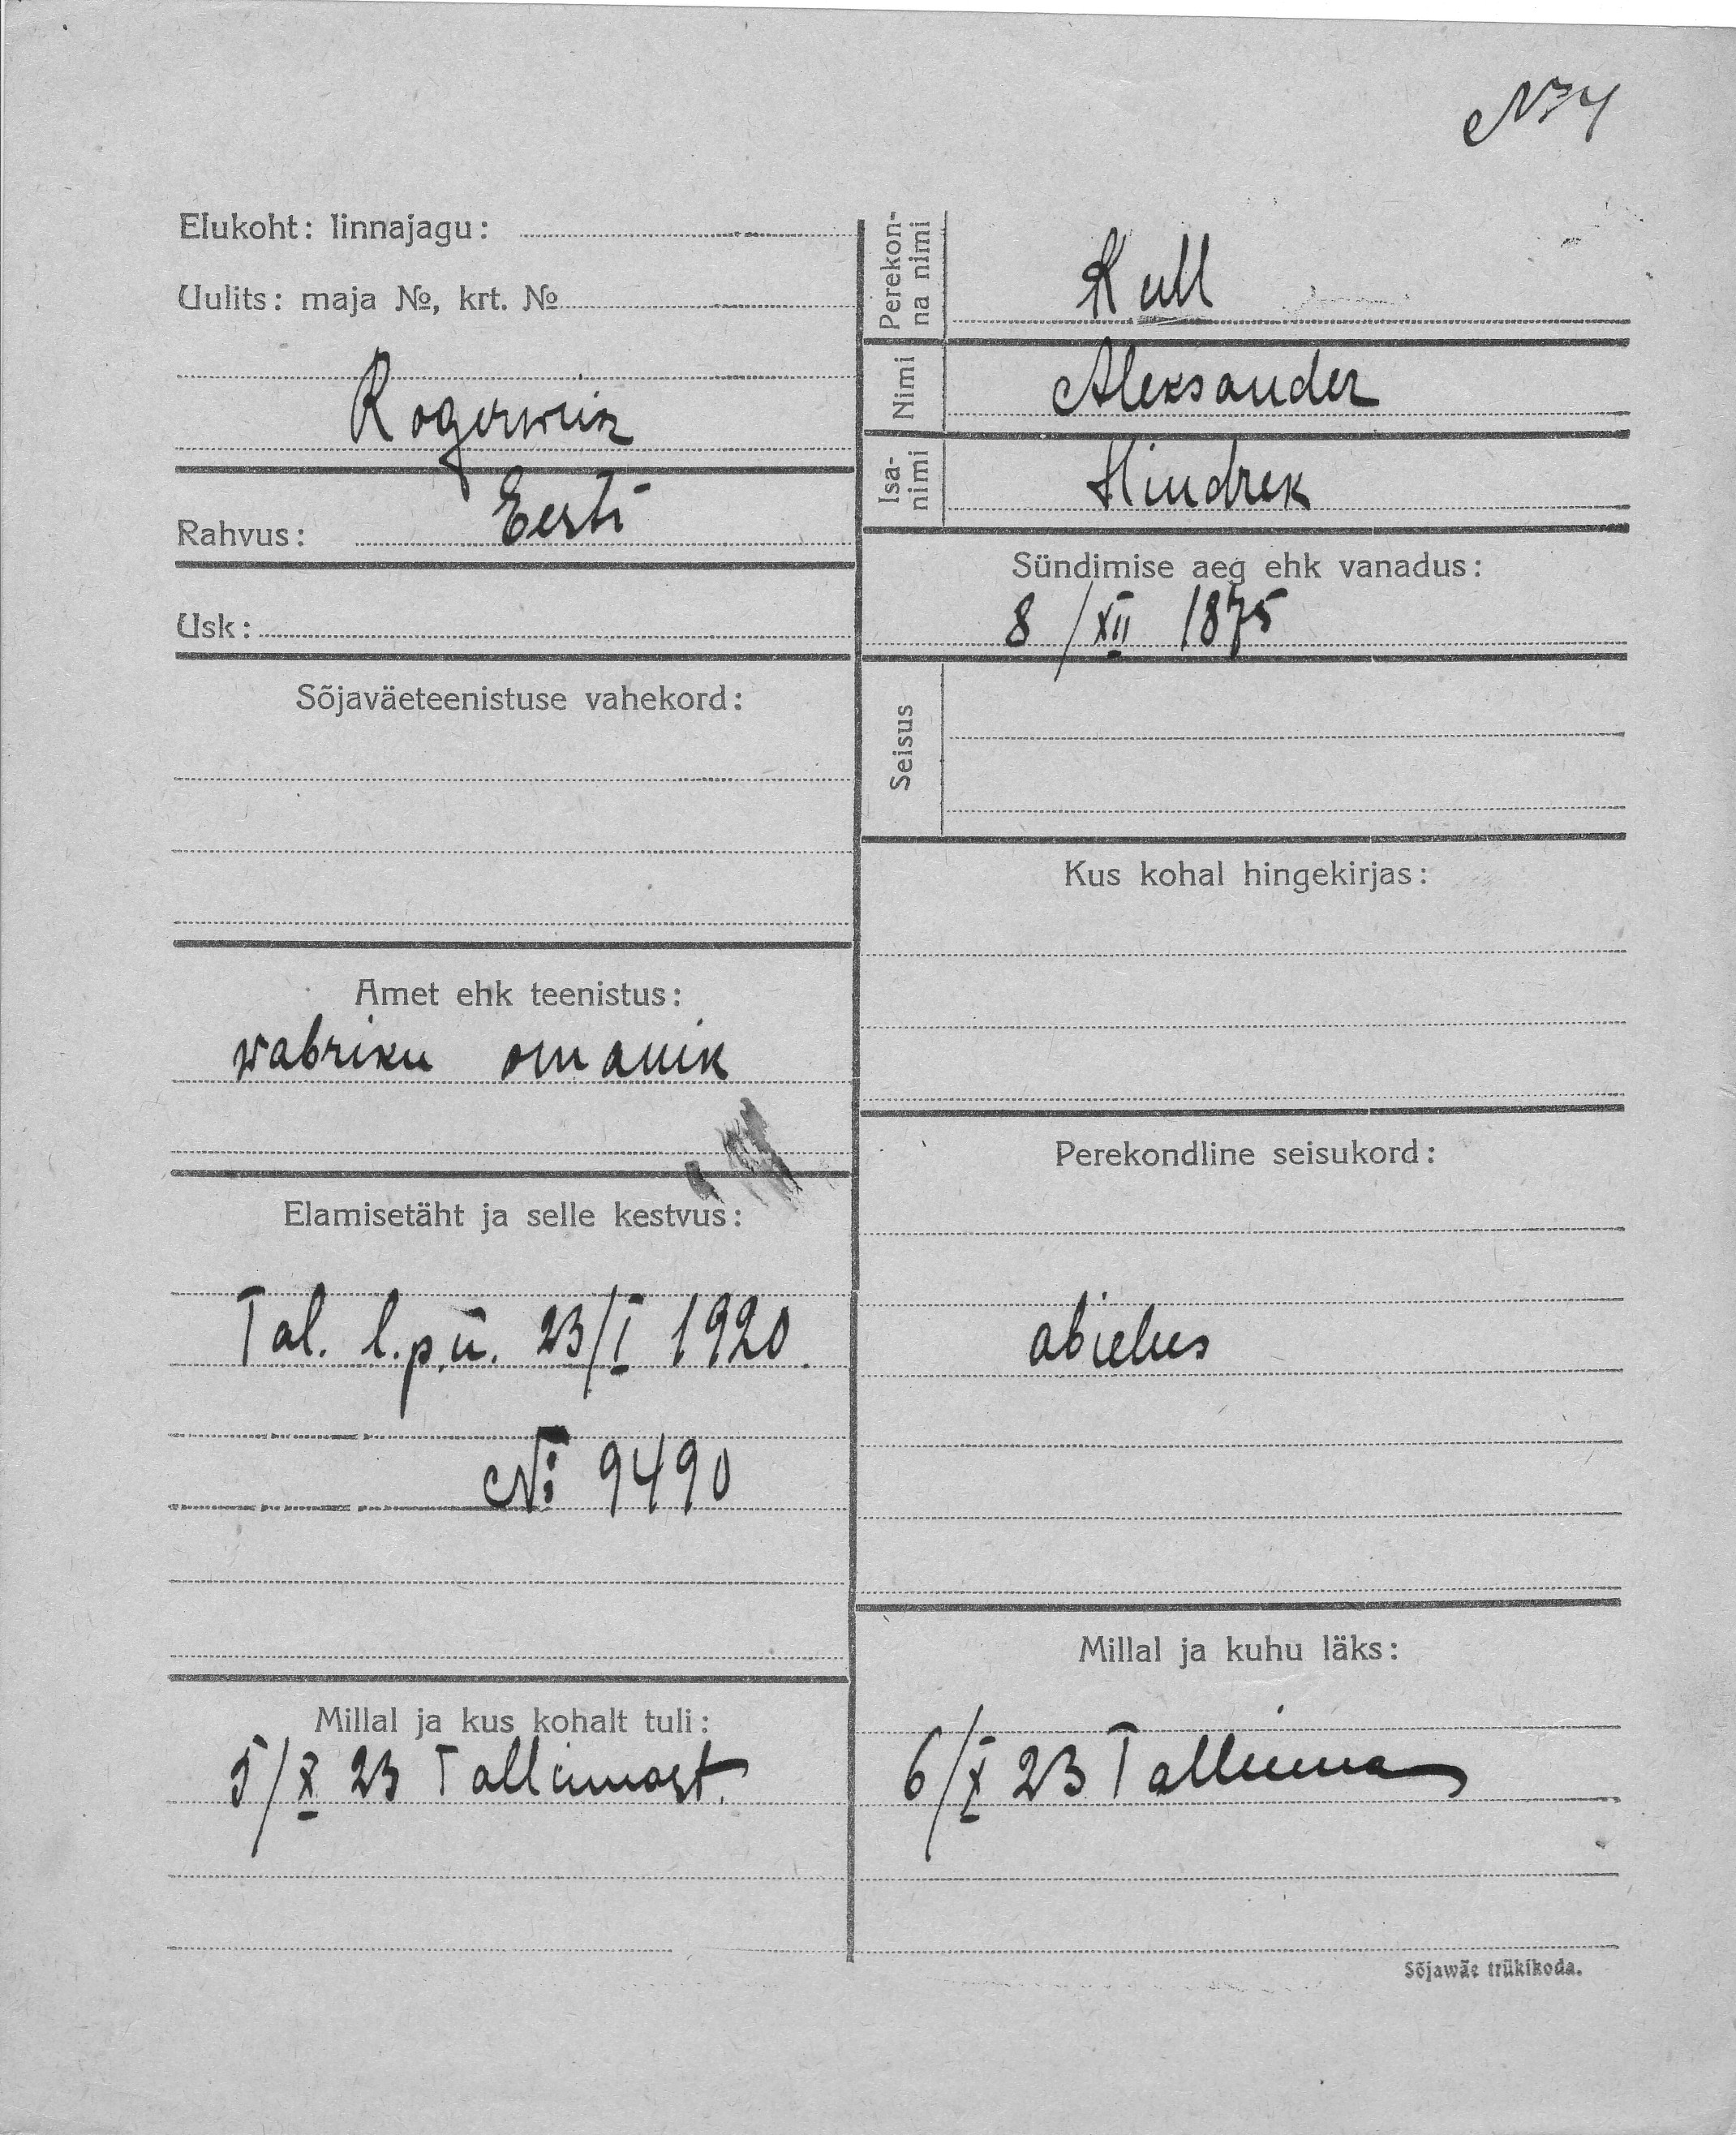 № 4
Elukoht: linnajagu:
Uulits: maja №, krt. №
Rogerwiik
Rahvus: Eesti
Usk:
Sõjaväeteenistuse vahekord:
Amet ehk teenistus:
wabriku omanik
Elamisetäht ja selle kestvus:
Tal. l.p.ü. 23/I 1920.
№ 9490
Millal ja kus kohalt tuli:
5/X 23 Tallinnast.
Perekon-
na nimi
Kull
Nimi
Aleksander
Isa-
nimi
Hindrek
Sündimise aeg ehk vanadus:
8/XII 1875
Seisus
Kus kohal hingekirjas:
Perekondline seisukord:
abielus
Millal ja kuhu läks:
6/X 23 Tallinna
Sõjawäe trükikoda.